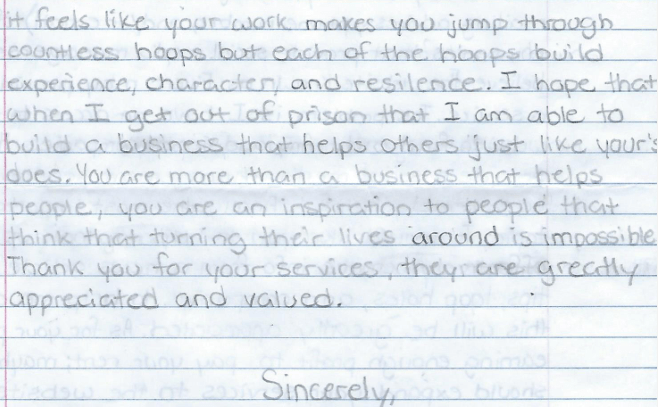 it feels like your work makes you jump through
countless hoops but each of the hoops build
experience, character, and resilence. I hope that
when I get out of prison that I am able to
build a business that helps others just like your's
does. You are more than a business that helps
people, you are an inspiration to people that
think that turning their lives around is impossible
Thank you for your services, they are greatly
appreciated and valued.
Sincerely,